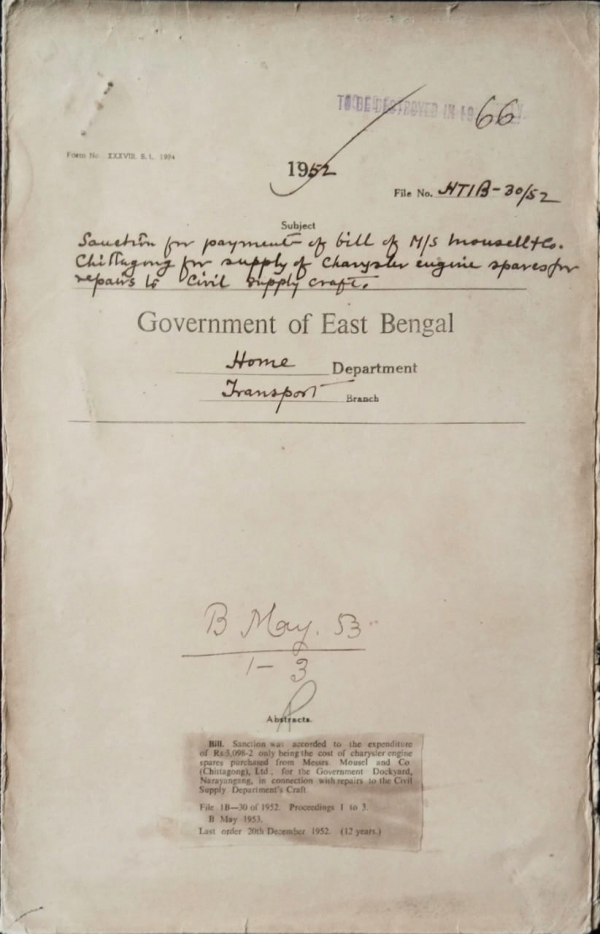 TO BE DESTROYED IN 19
66
Form No. XXXVIII, E. I., 1934
1952
File No. HT1B-30/52
Subject
Sanction for payment of bill of M/S Mousell & Co.
Chittagong for supply of Charysler engine spares for
repairs to Civil Supply craft.
Government of East Bengal
Home Department
Transport Branch
B May. 53
1-3
Abstracts.
Bill. Sanction was accorded to the expenditure
of Rs.5,096-2 only being the cost of charysler engine
spares purchased from Messrs. Mousel and Co
(Chittagong), Ltd., for the Government Dockyard,
Narayangang, in connection with repairs to the Civil
Supply Department's Craft
File 1B—30 of 1952. Proceedings 1 to 3.
B May 1953.
Last order 20th December 1952. (12 years.)